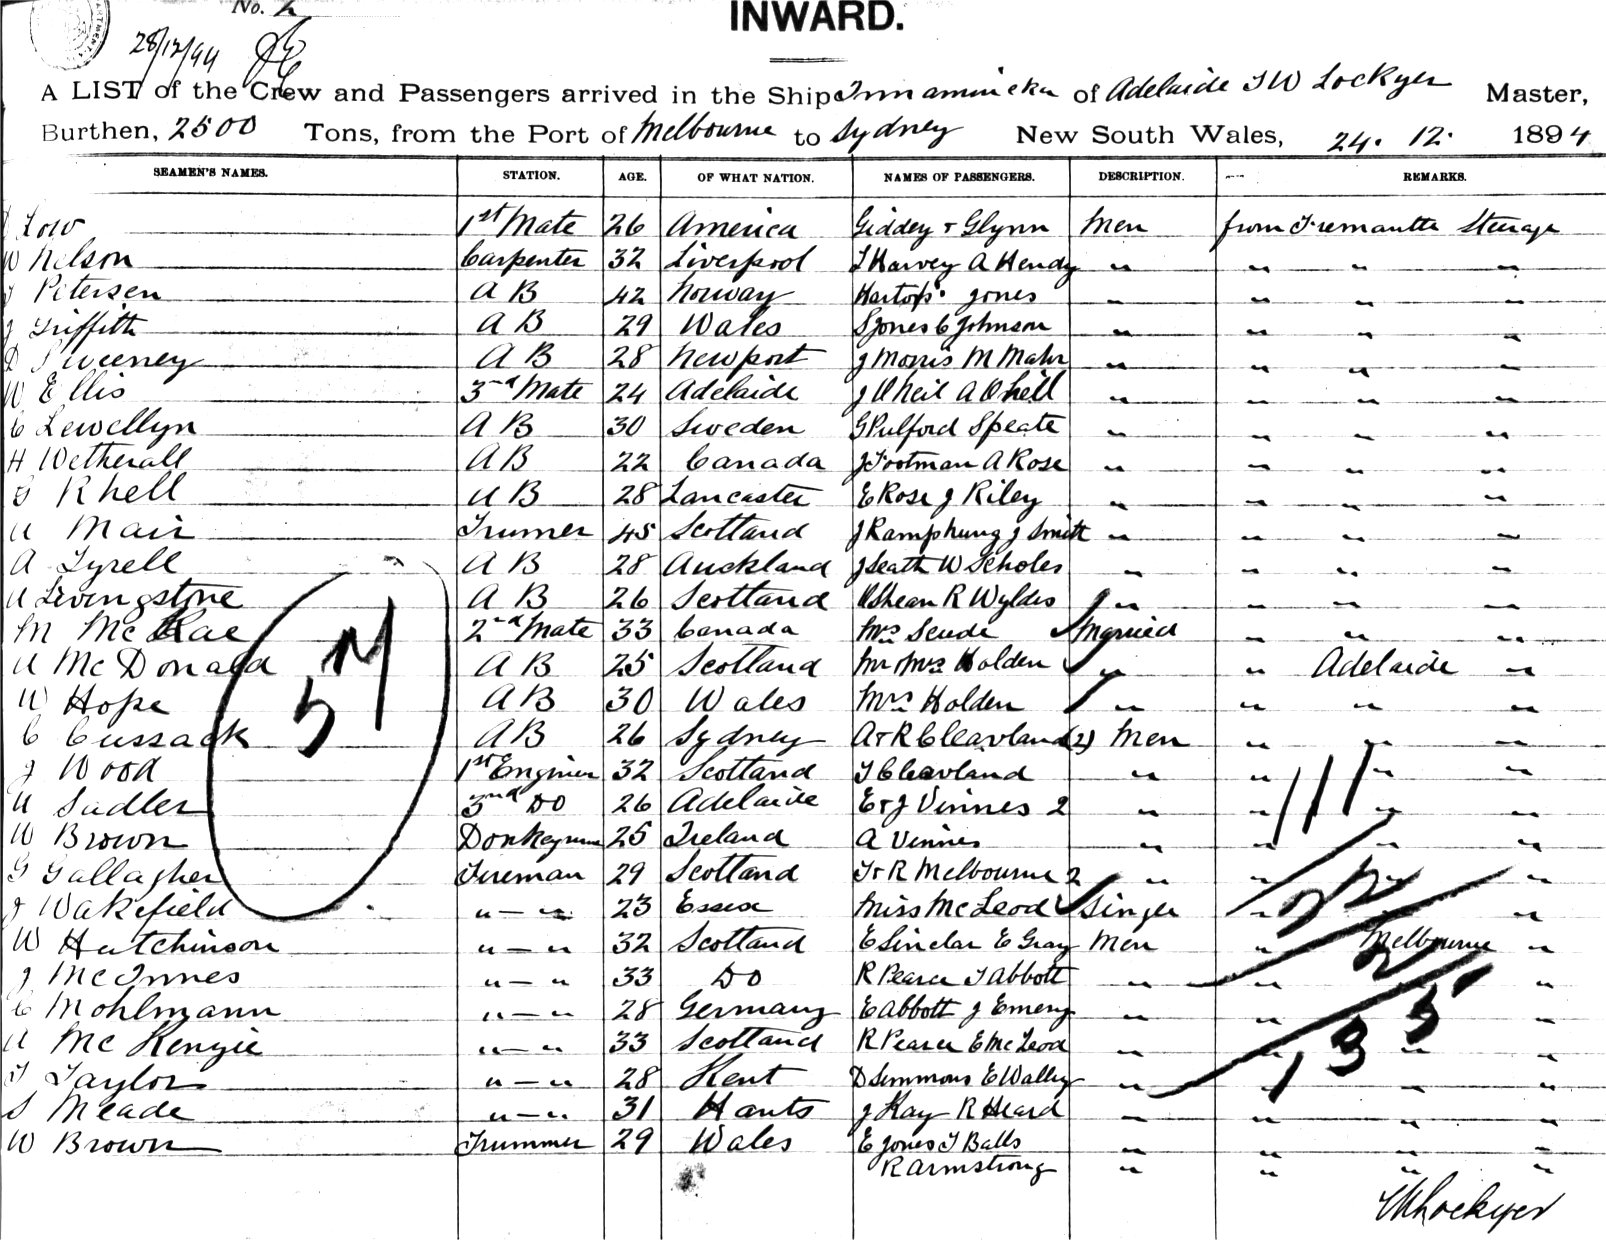 No. 2
INWARD.
28/12/94
A LIST of the Crew and Passengers arrived in the Ship Innamincka of Adelaide T W Lockyer Master,
Burthen, 2500 Tons, from the Port of Melbourne to Sydney New South Wales, 24. 12. 1894
SEAMEN'S NAMES. STATION. AGE. OF WHAT NATION. NAMES OF PASSENGERS. DESCRIPTION. REMARKS.
Low 1st Mate 26 America Giddey & Glynn Men from Fremantle Steerage
W Nelson Carpenter 32 Liverpool T Harvey A Hendy " " " "
J Petersen A B 42 Norway Hartop Jones " " " "
J Griffith A B 29 Wales S Jones C Johnson " " " "
D Sweeney A B 28 Newport J Morris M Mahr " " " "
W Ellis 3rd Mate 24 Adelaide J O Neil A O Neill " " " "
C Lewellyn A B 30 Sweden G Pulford Speate " " " "
H Wetherall A B 22 Canada J Footman A Rose " " " "
G Rhell A B 28 Lancaster E Rose J Riley " " " "
A Mair Trimer 45 Scotland J Ramphung J Smith " " " "
A Tyrell A B 28 Auckland J Seath W Scholes " " " "
A Livingstone A B 26 Scotland O Shean R Wyldes " " " "
M McRae 2nd Mate 33 Canada Mrs Seude Married " " "
A McDonald A B 25 Scotland Mr Mrs Holden " " Adelaide "
W Hope A B 30 Wales Mrs Holden " " " "
C Cussack A B 26 Sydney A & R Cleavland (2) Men " " "
J Wood 1st Enginer 32 Scotland T Cleavland " " " "
A Sadler 3rd Do 26 Adelaide E & J Vinnes 2 " " " "
W Brown Donkeyman 25 Ireland A Vinnes " " " "
G Gallagher Fireman 29 Scotland T & R Melbourne 2 " " " "
J Wakefield " — " 23 Essex Miss McLeod Singer " "
W Hutchinson " — " 32 Scotland E Sinclar E Gray Men " Melbourne "
J McInnes " — " 33 Do R Pearce T Abbott " " "
C Mohlmann " — " 28 Germany E Abbott J Emery " " "
A McKenzie " — " 33 Scotland R Pearce E McLeod " " " "
T Taylor " — " 28 Kent D Simmons E Walley " " " "
S Meade " — " 31 Hants J Kay R Heard " " " "
W Brown Trimmer 29 Wales E Jones T Balls " " " "
R Armstrong " " " "
T W Lockyer